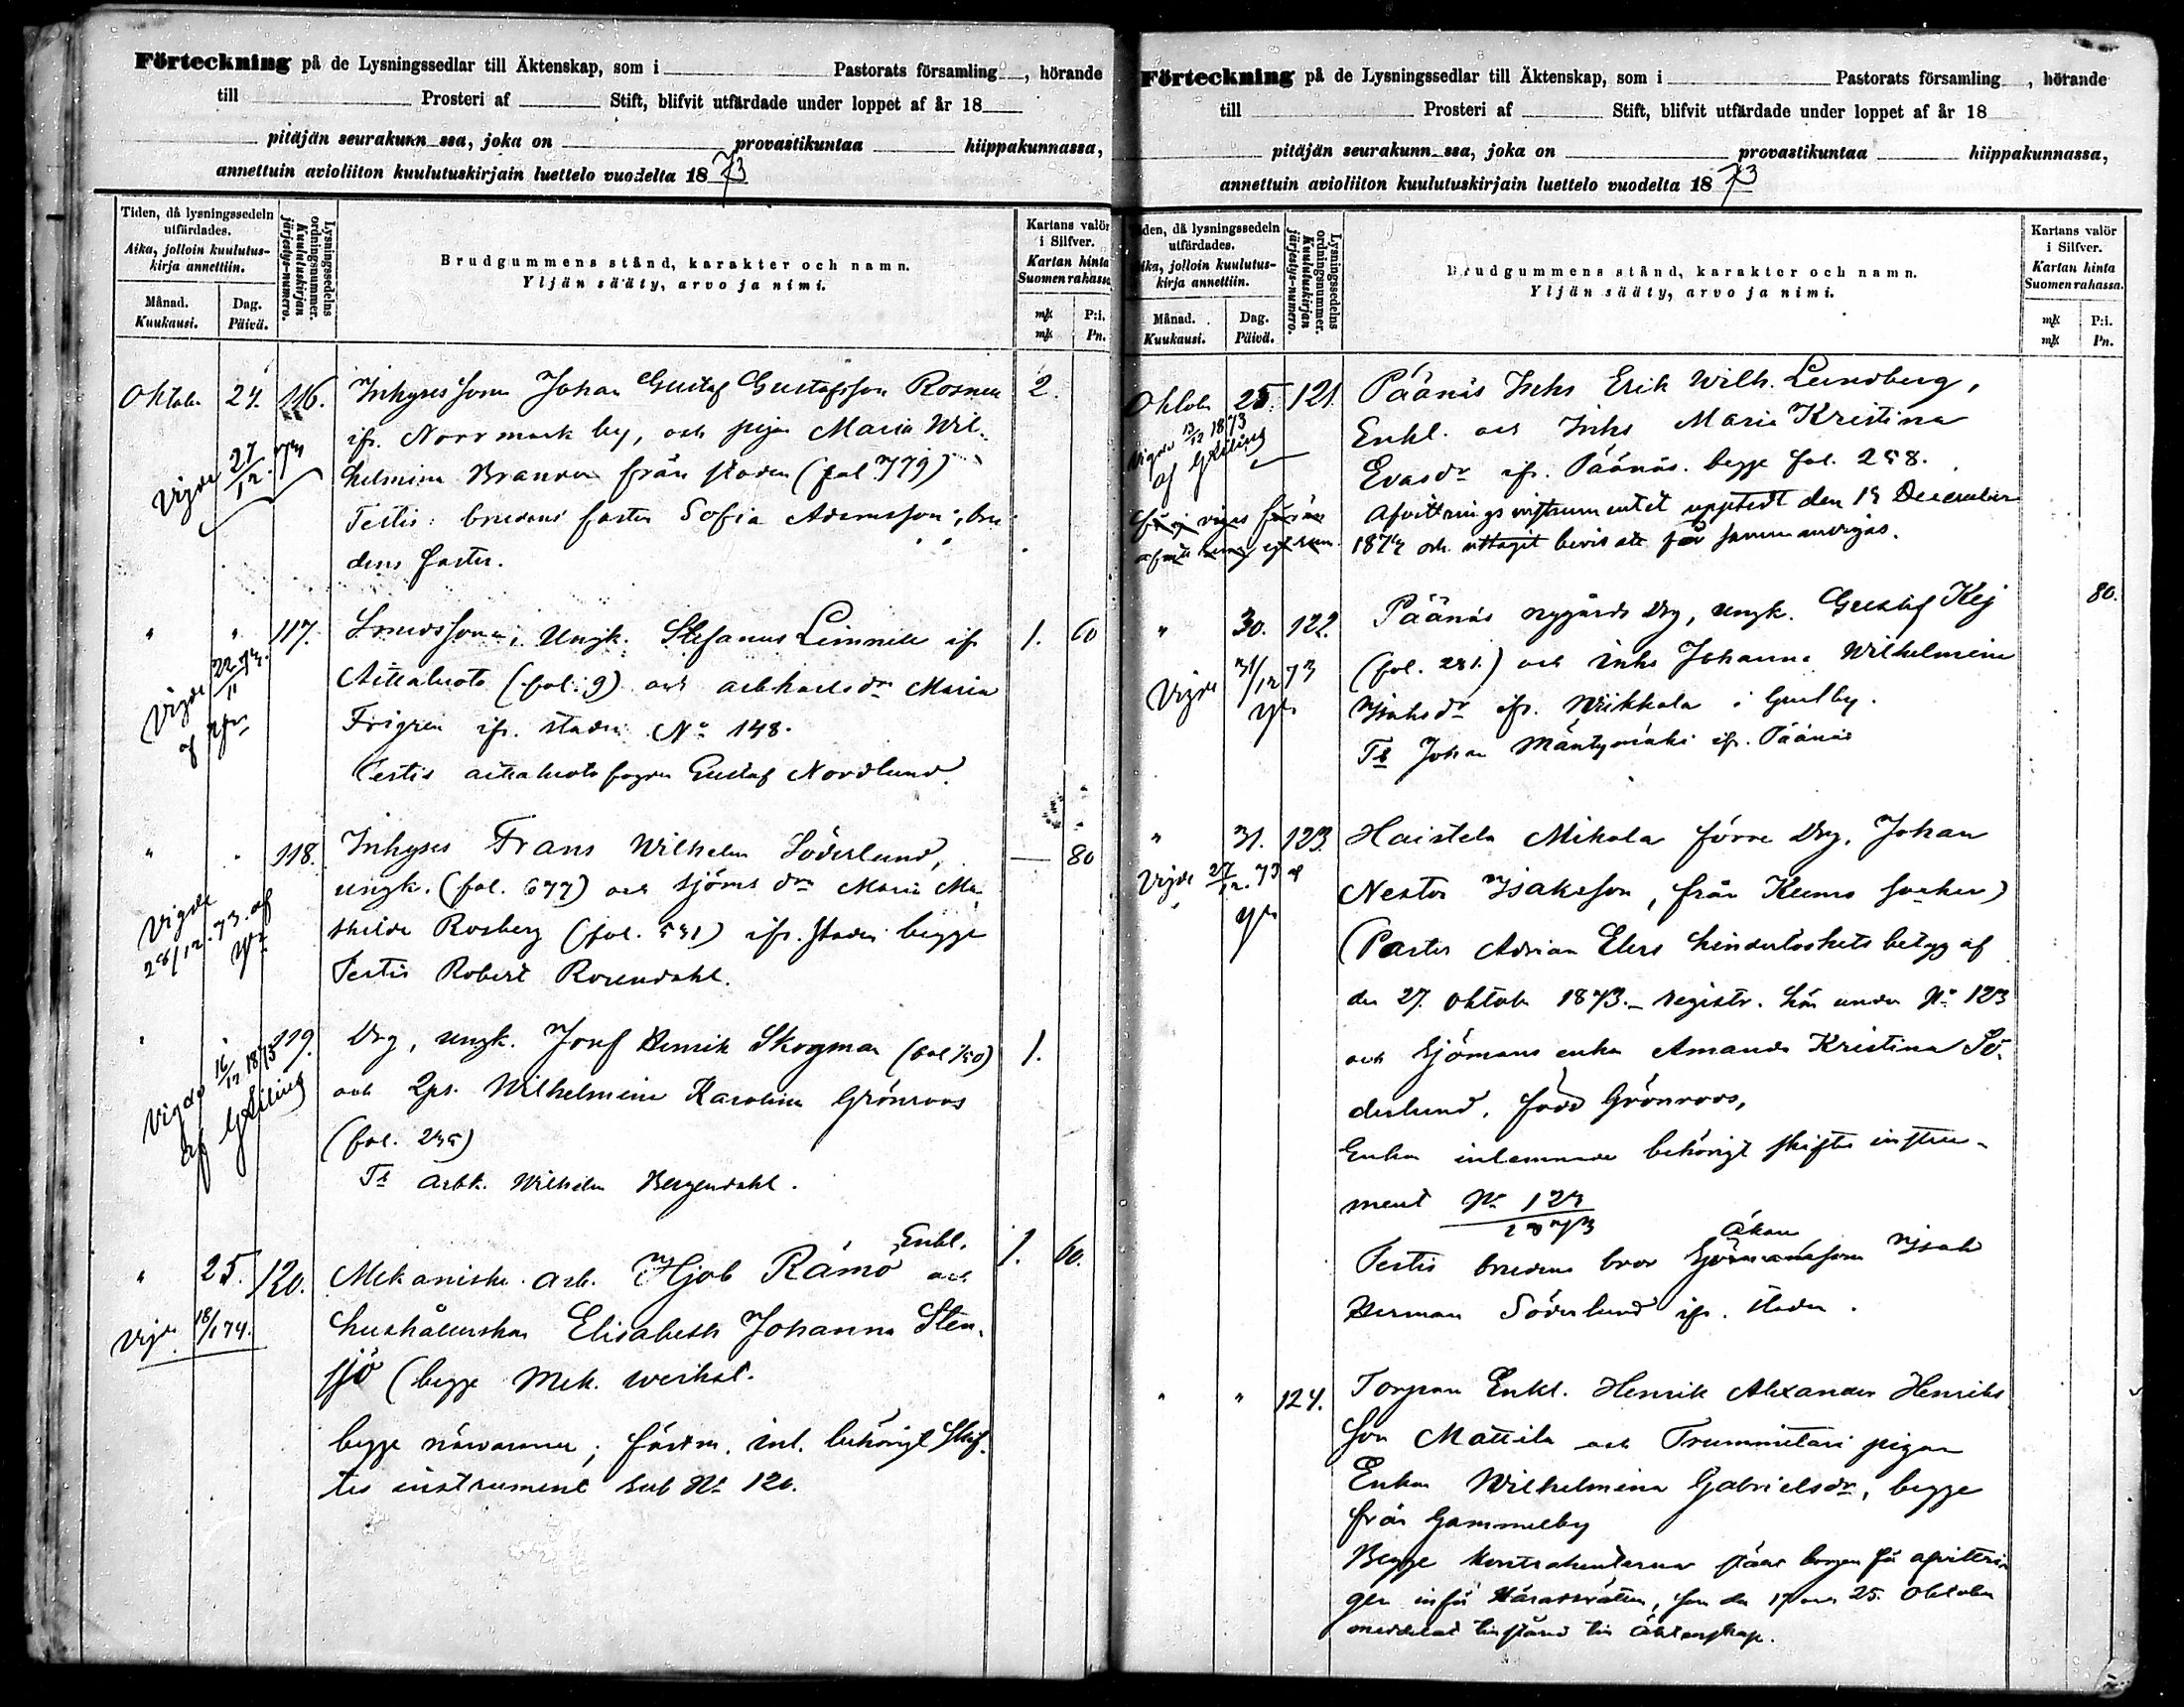 Förteckning på de Lysningssedlar till Äktenskap, som i Pastorats församling, hörande
till Prosteri af Stift, blifvit utfärdade under loppet af år 18
pitäjän seurakunn ssa, joka on provastikuntaa hiippakunnassa,
annettuin avioliiton kuulutuskirjain luettelo vuodelta 1873
Tiden, då lysningssedeln utfärdades.
Aika, jolloin kuulutus-kirja annettiin.
Månad. Kuukausi.
Dag. Päivä.
Lysningssedelns ordningsnummer.
Kuulutuskirjan järjestys-numero.
Brudgummens stånd, karakter och namn.
Yljän sääty, arvo ja nimi.
Kartans valör i Silfver.
Kartan hinta Suomen rahassa.
mk P:i.
mk Pn.
Oktob. 24. 116. Inhyses sonen Johan Gustaf Gustafsson Rosnen 2.
ifr. Norrmark by, och pigan Maria Wil-
helmina Brander från staden (fol 779)
Testis: brudens faster Sofia Adamsson; bru
dens faster.
Vigde 27/12 73
" " 117. Ungk. Stefanus Limnell ifr 1. 60
Aittaluoto (fol. 9) och arbkarls dr Maria
Frigren ifr. staden No 148.
Testis aittaluoto fogden Gustaf Nordlund.
Vigde 22/11 73.
af
" " 118. Inhyses Frans Wilhelm Söderlund, — 80
ungk. (fol. 677) och sjöms dr Maria Ma-
thilda Rosberg (fol. 531) ifr. staden begge
Testis Robert Rosendahl.
Vigde 26/12 73. af
" 119. Drg, ungk. Josef Henrik Skogman (fol 150) 1.
och Qps. Wilhelmina Karolina Grönroos
(fol. 235)
Ts Arbk. Wilhelm Bergendahl.
Vigde 16/12 1873
af G Liling
" 25. 120. Mekaniske arb. Hjob Rämö Enkl. och 1. 60.
hushållerskan Elisabeth Johanna Sten-
sjö (begge Mek. werkst.
begge närvarande; fästm. inl. behörigt skif-
tes instrument sub No 120.
Vigde 18/1 74.
Förteckning på de Lysningssedlar till Äktenskap, som i Pastorats församling, hörande
till Prosteri af Stift, blifvit utfärdade under loppet af år 18
pitäjän seurakunn ssa, joka on provastikuntaa hiippakunnassa,
annettuin avioliiton kuulutuskirjain luettelo vuodelta 1873
Tiden, då lysningssedeln utfärdades.
Aika, jolloin kuulutus-kirja annettiin.
Månad. Kuukausi.
Dag. Päivä.
Lysningssedelns ordningsnummer.
Kuulutuskirjan järjestys-numero.
Brudgummens stånd, karakter och namn.
Yljän sääty, arvo ja nimi.
Kartans valör i Silfver.
Kartan hinta Suomen rahassa.
mk P:i.
mk Pn.
Oktob 25. 121. Päänäs Inhs Erik Wilh. Lundberg,
Enkl. och Inhs Maria Kristina
Evasdr ifr. Päänäs. begge fol. 258.
Afvittringsinstrumentet uppstedt den 13 December
1873 och uttagit bevis att få sammanvigas.
Vigde 13/12 1873
af G Liling
får ej vigas förrän
" 30. 122. Päänäs nygårds Drg, ungk. Gustaf Kej 80.
(fol. 281.) och Inhs Johanna Wilhelmina
Isaksdr ifr. Wiikkala i Gunlby.
Ts Johan Mäntymäki ifr. Päänäs
Vigde 31/12 73
" 31. 123. Haistela Mikola förre Drg. Johan
Nestor Isaksson, från Kumo socken
(Pastor Adrian Elers hinderlöshets betyg af
den 27. oktob 1873. – registr. här under No 123
och Sjömans enkan Amanda Kristina Sö-
derlund, född Grönroos,
Enkan inlemnade behörigt skiftes instru-
ment No 123/1873
Testis brudens bror åkan Isak
Herman Söderlund ifr. staden.
Vigde 27/12. 73 af
" " 124. Torpare Enkl. Henrik Alexander Henriks
son Mattila och Trummitari pigan
Enkan Wilhelmina Gabrielsdr, begge
från Gammelby
Begge kontrahenterna ställt borgen för afvittrin
gen inför Häradsrätten, som den 17 och 25. Oktober
meddelat tillstånd till äktenskap.